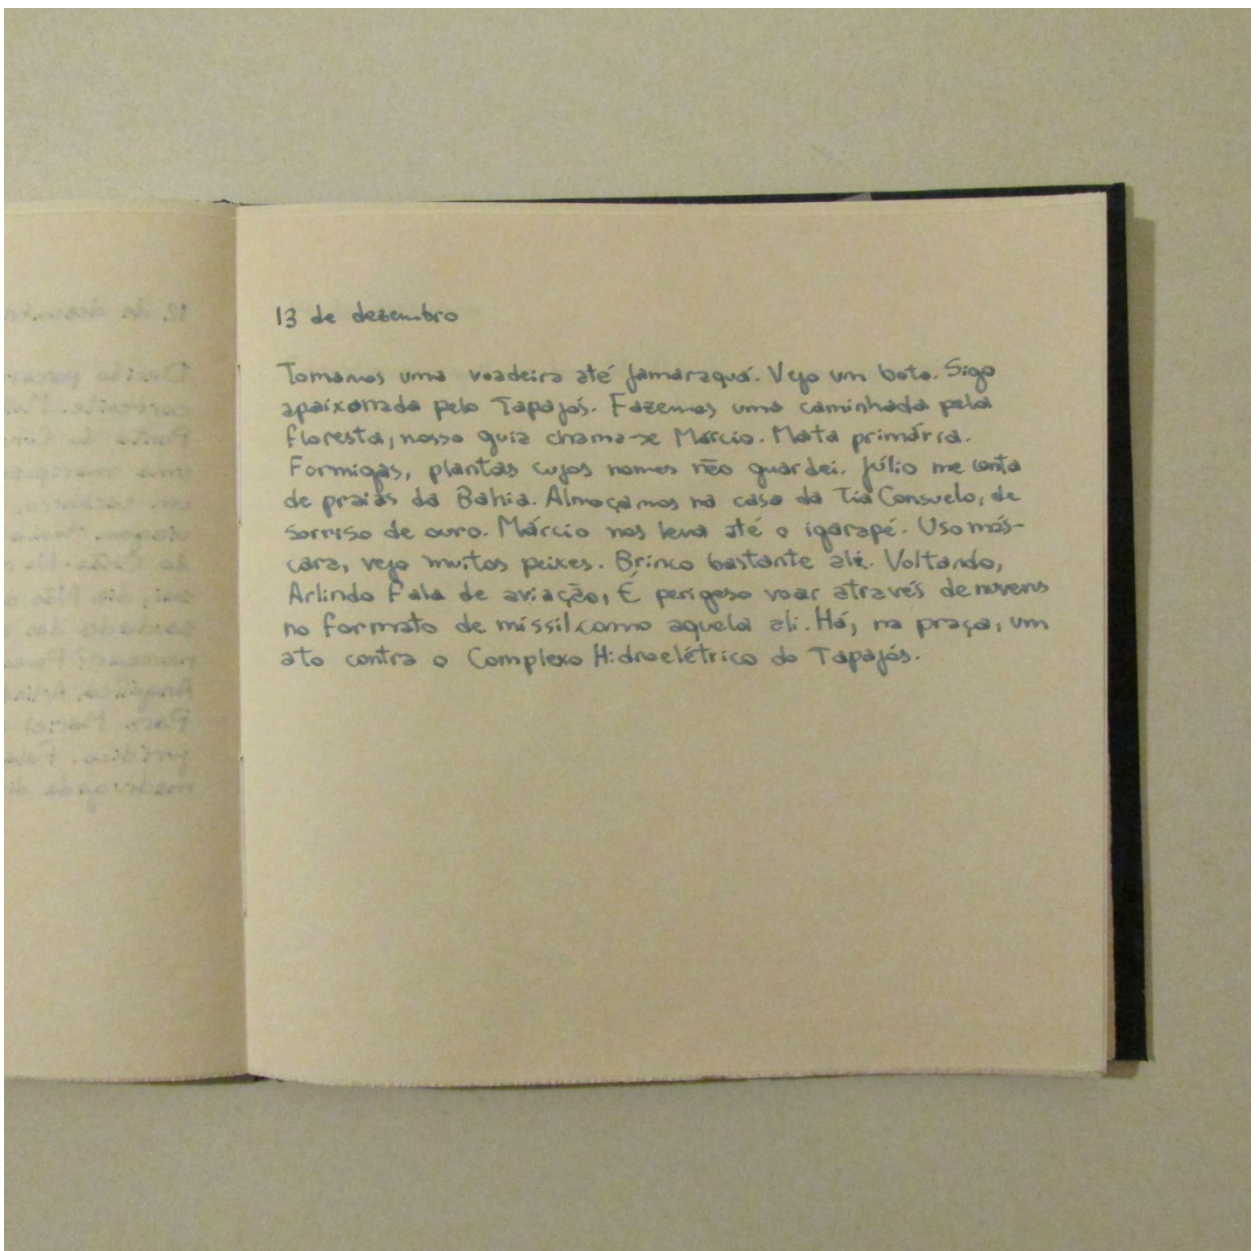 13 de dezembro
Tomamos uma voadeira até Jamaraquá. Vejo um boto. Sigo
apaixonada pelo Tapajós. Fazemos uma caminhada pela
floresta, nosso guia chama-se Márcio. Mata primária.
Formigas, plantas cujos nomes não guardei. Júlio me conta
de praias da Bahia. Almoçamos na casa da Tia Consuelo, de
sorriso de ouro. Márcio nos leva até o igarapé. Uso más-
cara, vejo muitos peixes. Brinco bastante ali. Voltando,
Arlindo fala de aviação, É perigoso voar através de nuvens
no formato de míssil como aquela ali. Há, na praça, um
ato contra o Complexo Hidroelétrico do Tapajós.